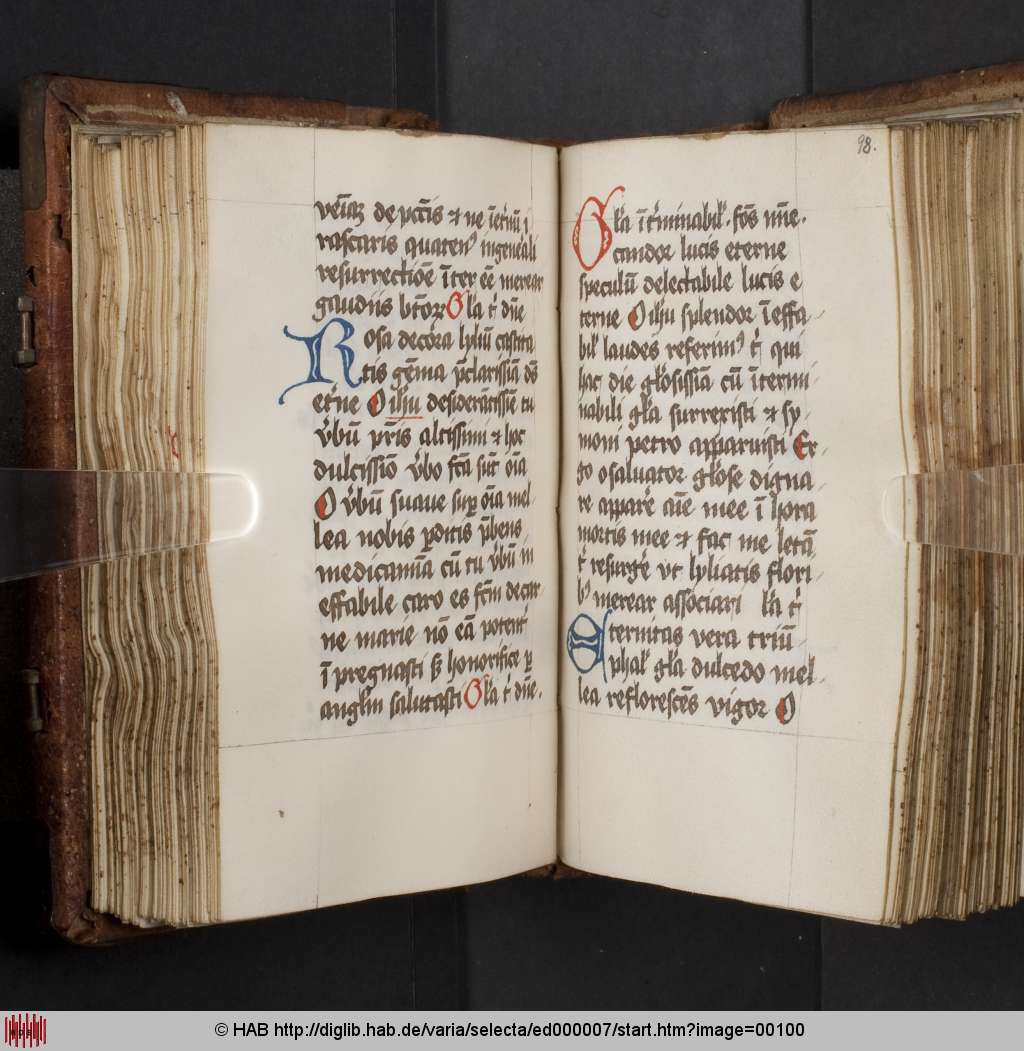 veīaʒ de pctīs ⁊ ne īet'nū i
rascaris quaten⁹ ingen̄ali
resurrectiōe īter ēe merear
gaudiis btōꝝ Gl'a t' dn̄e
Rosa decōra lyliū castita
tis gēma p̄clarissīa ds̄
et'ne O ihu desiderātissīe tu
v'bū pr̄is altissimi ⁊ hoc
dulcissīo v'bo fc̄a sūt oīa
O v'bū suaue suꝑ oīa mel
lea nobis ꝑditis p̄bens
medicamīa cū tu v'bū in
effabile caro es fc̄m de car
ne marie nō eā potent'
ī pregnasti sꝫ honorifice ꝑ
angl'm salutasti Gl'a t' dn̄e.
98.
Gl'a īt'minabil'. fōs im̄e.
candor lucis eterne
speculū delectabile lucis e
terne O ihu splendor īeffa
bil' laudes referim⁹ t' qui
hac die gl'osissīa cū ītermi
nabili gl'a surrexisti ⁊ sy
moni petro apparuisti Er
go o saluator gl'ose digna
re appar'e aīe mee ī hora
mortis mee ⁊ fac me letā
t' resurg'e vt lyliatis flori
b⁹ merear associari l'a t'
Eternitas vera triū
phal' gl'a dulcedo mel
lea reflorescēs vigor O
© HAB http://diglib.hab.de/varia/selecta/ed000007/start.htm?image=00100